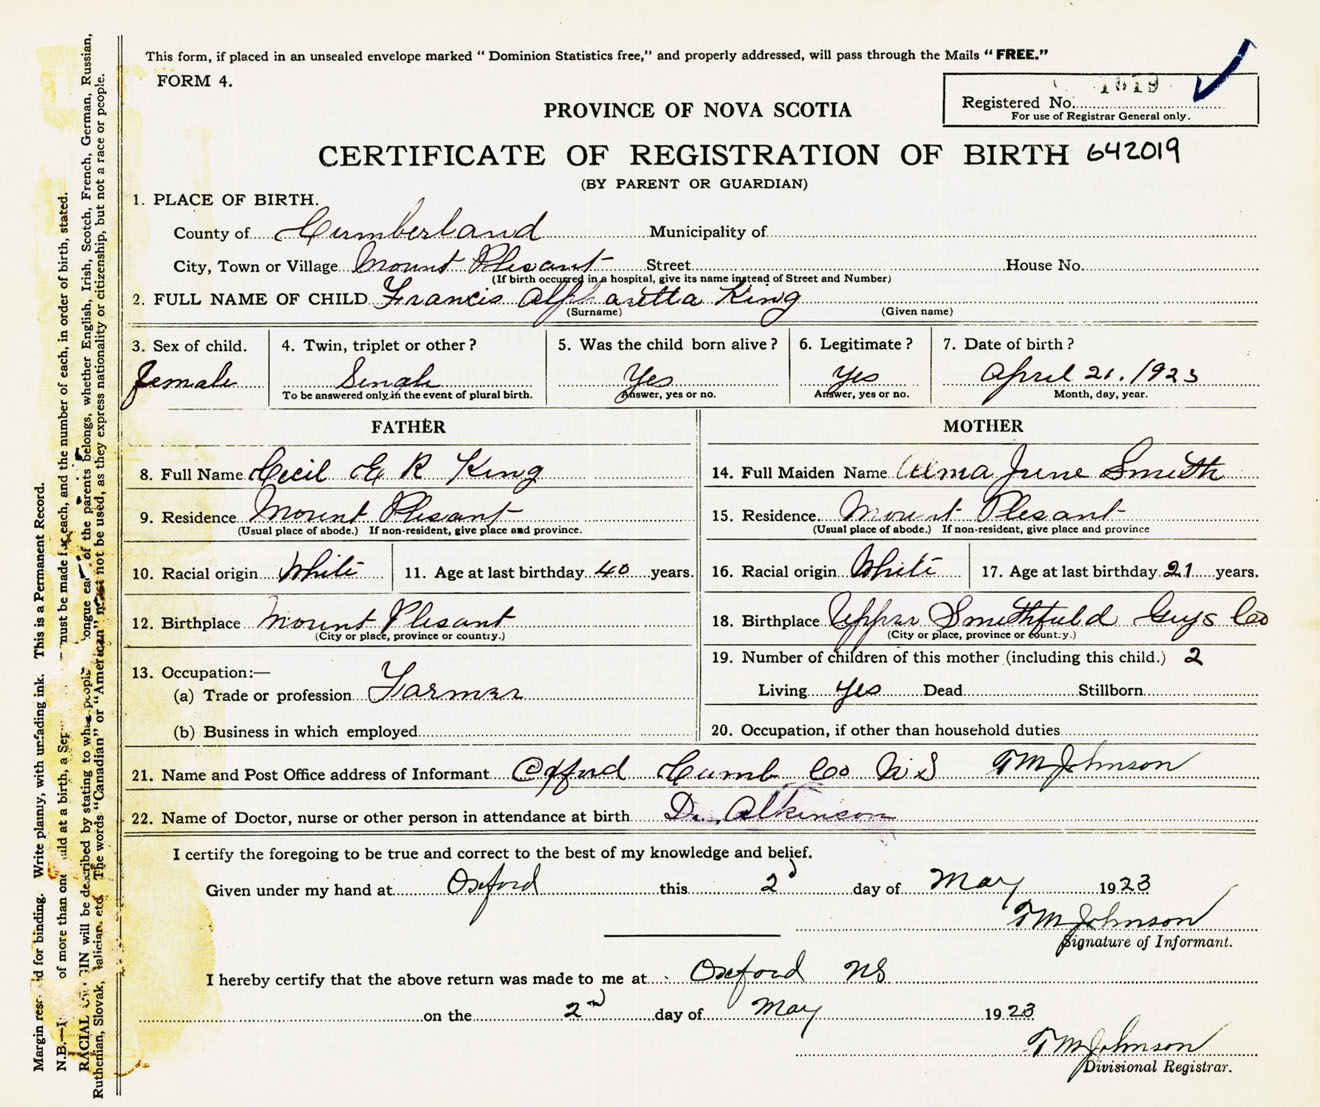 This form, if placed in an unsealed envelope marked “ Dominion Statistics free,” and properly addressed, will pass through the Mails “ FREE.”
FORM 4.
1519
Registered No.
For use of Registrar General only.
PROVINCE OF NOVA SCOTIA
CERTIFICATE OF REGISTRATION OF BIRTH 642019
(BY PARENT OR GUARDIAN)
1. PLACE OF BIRTH.
County of Cumberland Municipality of
City, Town or Village Mount Plesant Street House No.
(If birth occurred in a hospital, give its name instead of Street and Number)
2. FULL NAME OF CHILD Francis Alpharetta King
(Surname) (Given name)
3. Sex of child. 4. Twin, triplet or other? 5. Was the child born alive? 6. Legitimate? 7. Date of birth?
female Single Yes Yes April 21. 1923
To be answered only in the event of plural birth. Answer, yes or no. Answer, yes or no. Month, day, year.
FATHER MOTHER
8. Full Name Cecil E R King 14. Full Maiden Name Alma June Smith
9. Residence Mount Plesant 15. Residence Mount Plesant
(Usual place of abode.) If non-resident, give place and province. (Usual place of abode.) If non-resident, give place and province
10. Racial origin White 11. Age at last birthday 40 years. 16. Racial origin White 17. Age at last birthday 21 years.
12. Birthplace Mount Plesant 18. Birthplace Upper Smithfield Guys Co
(City or place, province or country.) (City or place, province or country.)
13. Occupation:— 19. Number of children of this mother (including this child.) 2
(a) Trade or profession Farmer Living yes Dead Stillborn
(b) Business in which employed 20. Occupation, if other than household duties
21. Name and Post Office address of Informant Oxford Cumb Co NS T M Johnson
22. Name of Doctor, nurse or other person in attendance at birth Dr. Atkinson
I certify the foregoing to be true and correct to the best of my knowledge and belief.
Given under my hand at Oxford this 2d day of May 1923
T M Johnson
Signature of Informant.
I hereby certify that the above return was made to me at Oxford NS
on the 2nd day of May 1923
T M Johnson
Divisional Registrar.
for binding. Write plainly, with unfading ink. This is a Permanent Record.
of more than one at a birth, a must be made for each, and the number of each, in order of birth, stated.
RACIAL will be described by stating to what people of the parents belongs, whether English, Irish, Scotch, French, German, Russian,
Ruthenian, Slovak, etc. The words “Canadian” or “American” must not be used, as they express nationality or citizenship, but not a race or people.